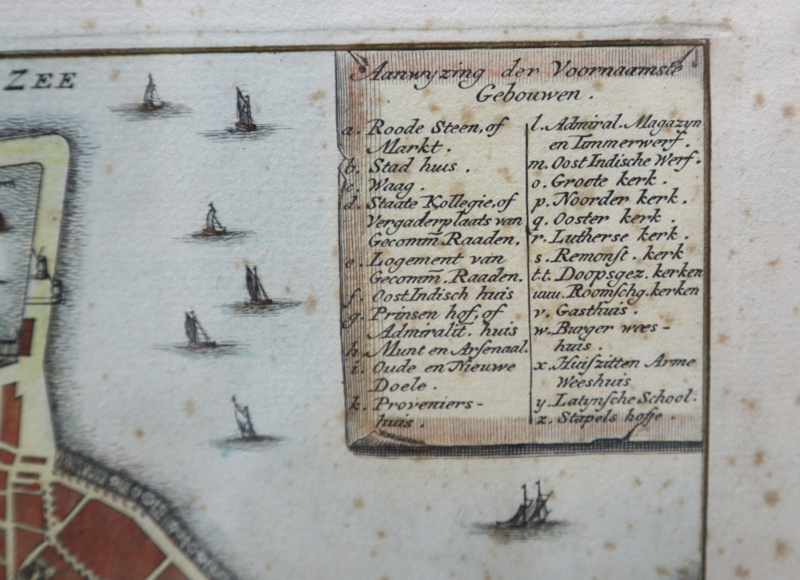 ZEE
Aanwyzing der Voornaamste
Gebouwen.
a. Roode Steen, of
Markt.
b. Stad huis.
c. Waag.
d. Staate Kollegie, of
Vergaderplaats van
Gecomm̄. Raaden.
e. Logement van
Gecomm̄. Raaden.
f. Oost Indisch huis
g. Prinsen hof, of
Admiralit. huis
h. Munt en Arsenaal.
i. Oude en Nieuwe
Doele.
k. Proveniers-
huis.
l. Admiral. Magazyn
en Timmerwerf.
m. Oost Indische Werf.
o. Groote kerk.
p. Noorder kerk.
q. Ooster kerk.
r. Lutherse kerk.
s. Remonst. kerk
tt. Doopsgez. kerken
uuu. Roomschg. kerken
v. Gasthuis.
w. Burger wees-
huis.
x. Huiszitten Arme
Weeshuis
y. Latynsche School.
z. Stapels hofje.